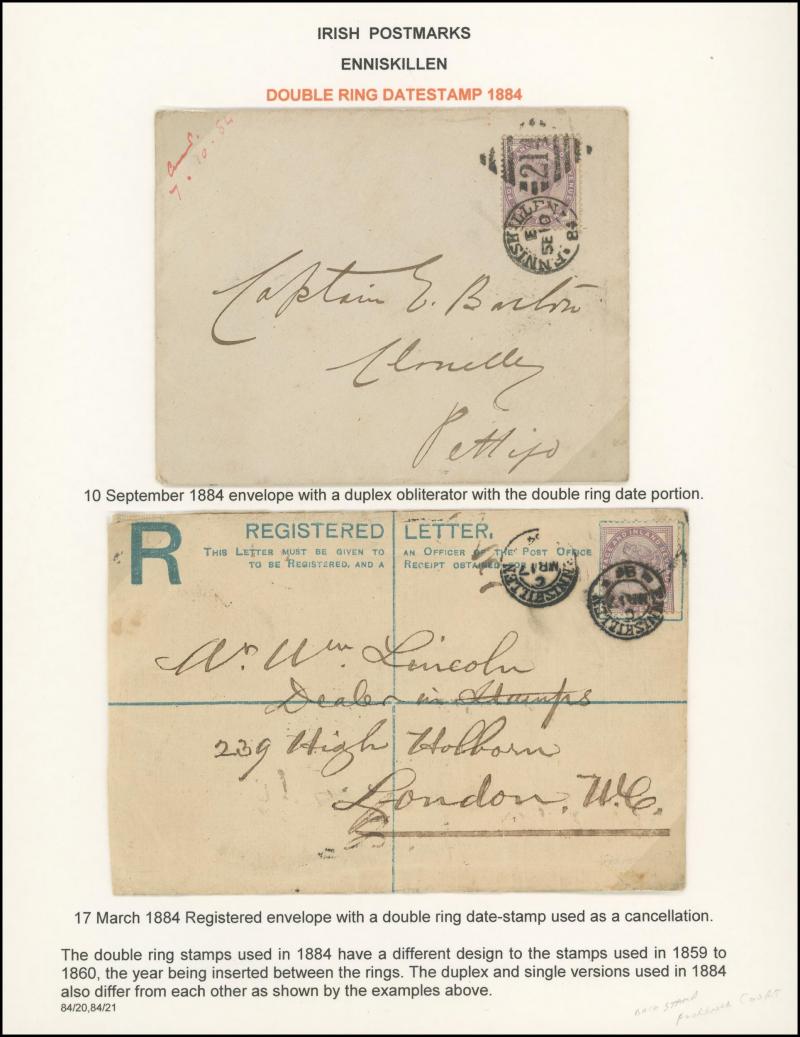 IRISH POSTMARKS
ENNISKILLEN
DOUBLE RING DATESTAMP 1884
7. 10. 84
21
ENNISKILLEN
E
SE 10
Captain E. Barton
Clonelly
Pettigo
10 September 1884 envelope with a duplex obliterator with the double ring date portion.
R
REGISTERED LETTER.
THIS LETTER MUST BE GIVEN TO AN OFFICER OF THE POST OFFICE
TO BE REGISTERED, AND A RECEIPT OBTAINED FOR
ENNISKILLEN
C
MR 17
ENNISKILLEN
C
MR 17
Mr. Wm Lincoln
Dealer in Stamps
239 High Holborn
London, W.C.
17 March 1884 Registered envelope with a double ring date-stamp used as a cancellation.
The double ring stamps used in 1884 have a different design to the stamps used in 1859 to
1860, the year being inserted between the rings. The duplex and single versions used in 1884
also differ from each other as shown by the examples above.
84/20,84/21